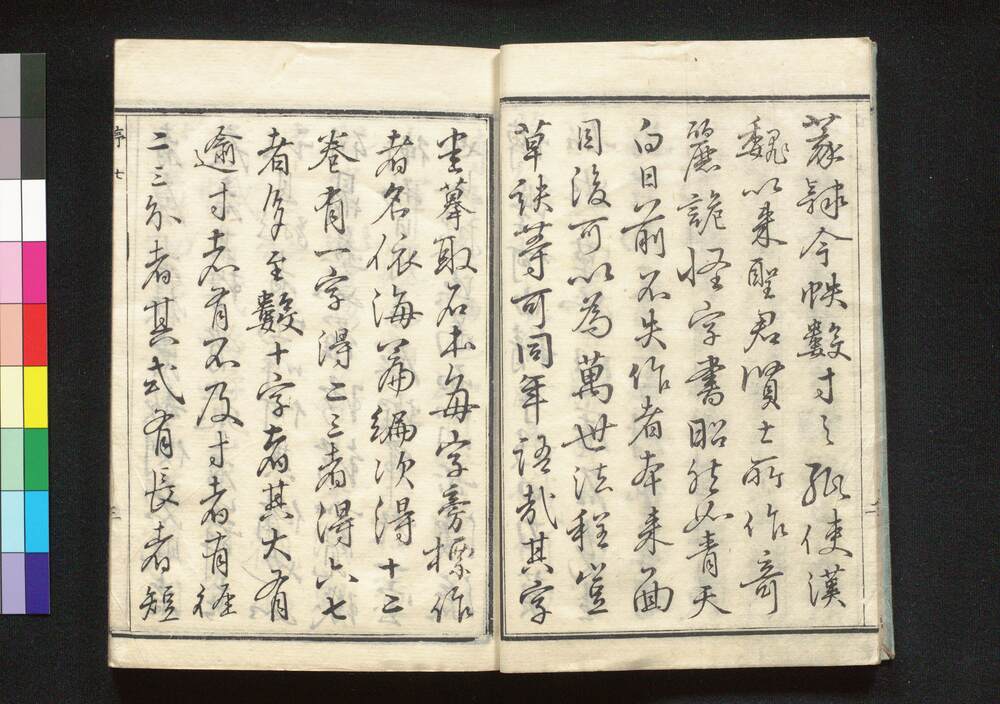 篆隷今帙數寸之紙使漢
魏以来聖君賢士所作奇
麗詭怪字書昭然如青天
白日前不失作者本来面
目後可以為萬世法程豈
草訣等可同年語哉其字
盡摹取石本每字旁標作
者名依海篇編次得十二
卷有一字得二三者得六七
者多至數十字者其大有
逾寸者有不及寸者有径
二三分者其式有長者短
序 七